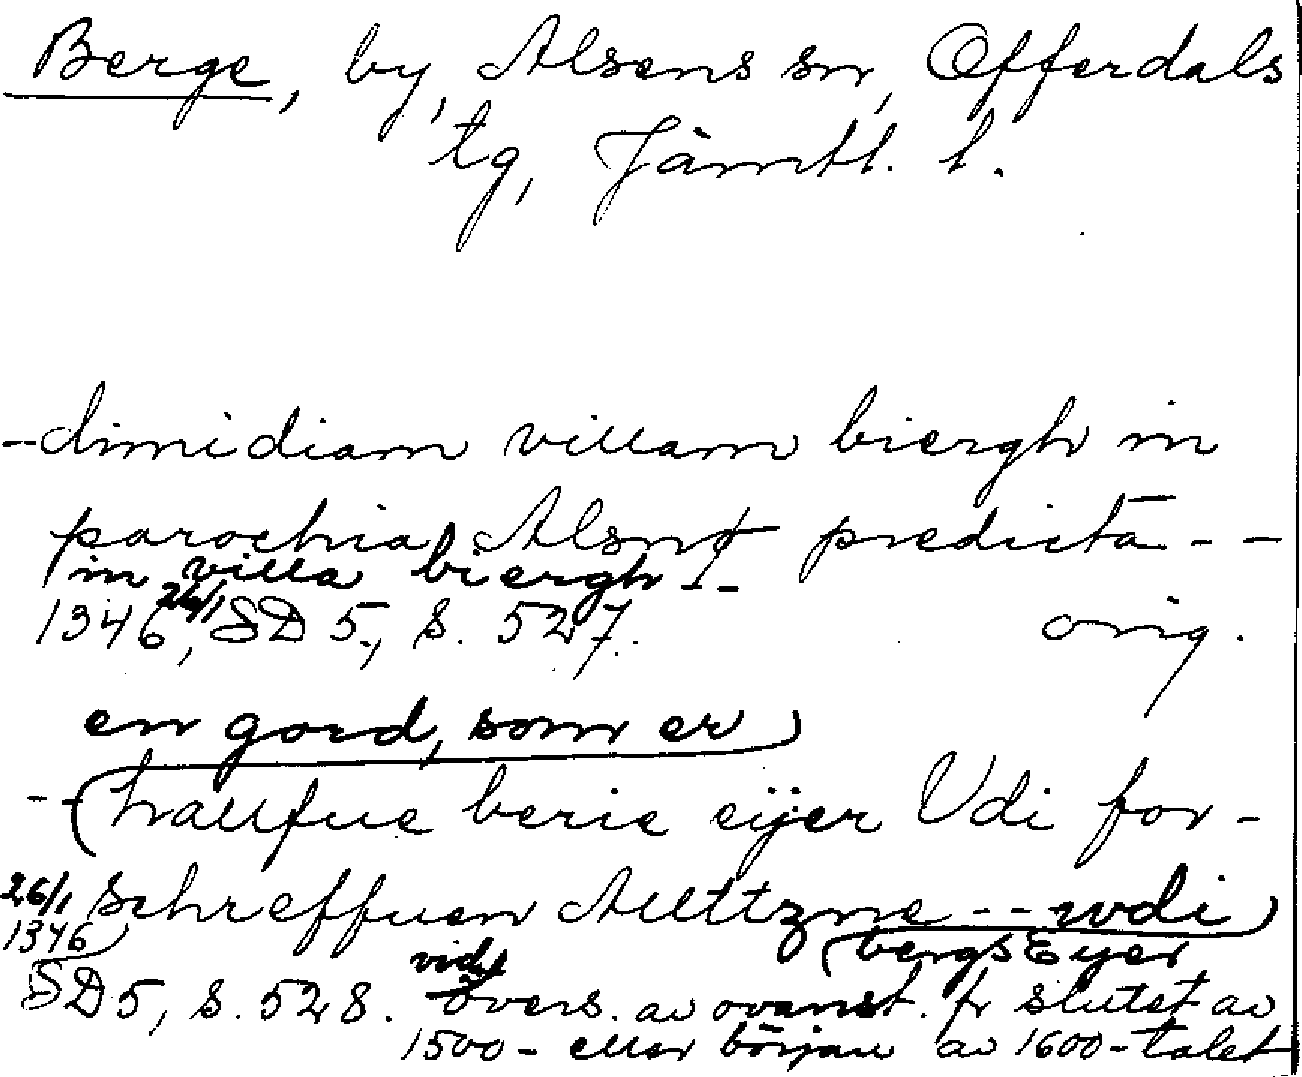 Berge, by, Alsens sn, Offerdals
tg, Jämtl. l.
-dimidiam villam biergh in
parochia Alsnø predicta - -
in villa biergh - -
1346 26/1, SD 5, s. 527. orig.
en gord, som er
- - hallfue berie eijer Udi for-
schreffuen Allttzne - - wdi
26/1
1346
bergs Eyer
SD 5, s. 528. vid.
övers. av ovanst. fr slutet av
1500- eller början av 1600-talet